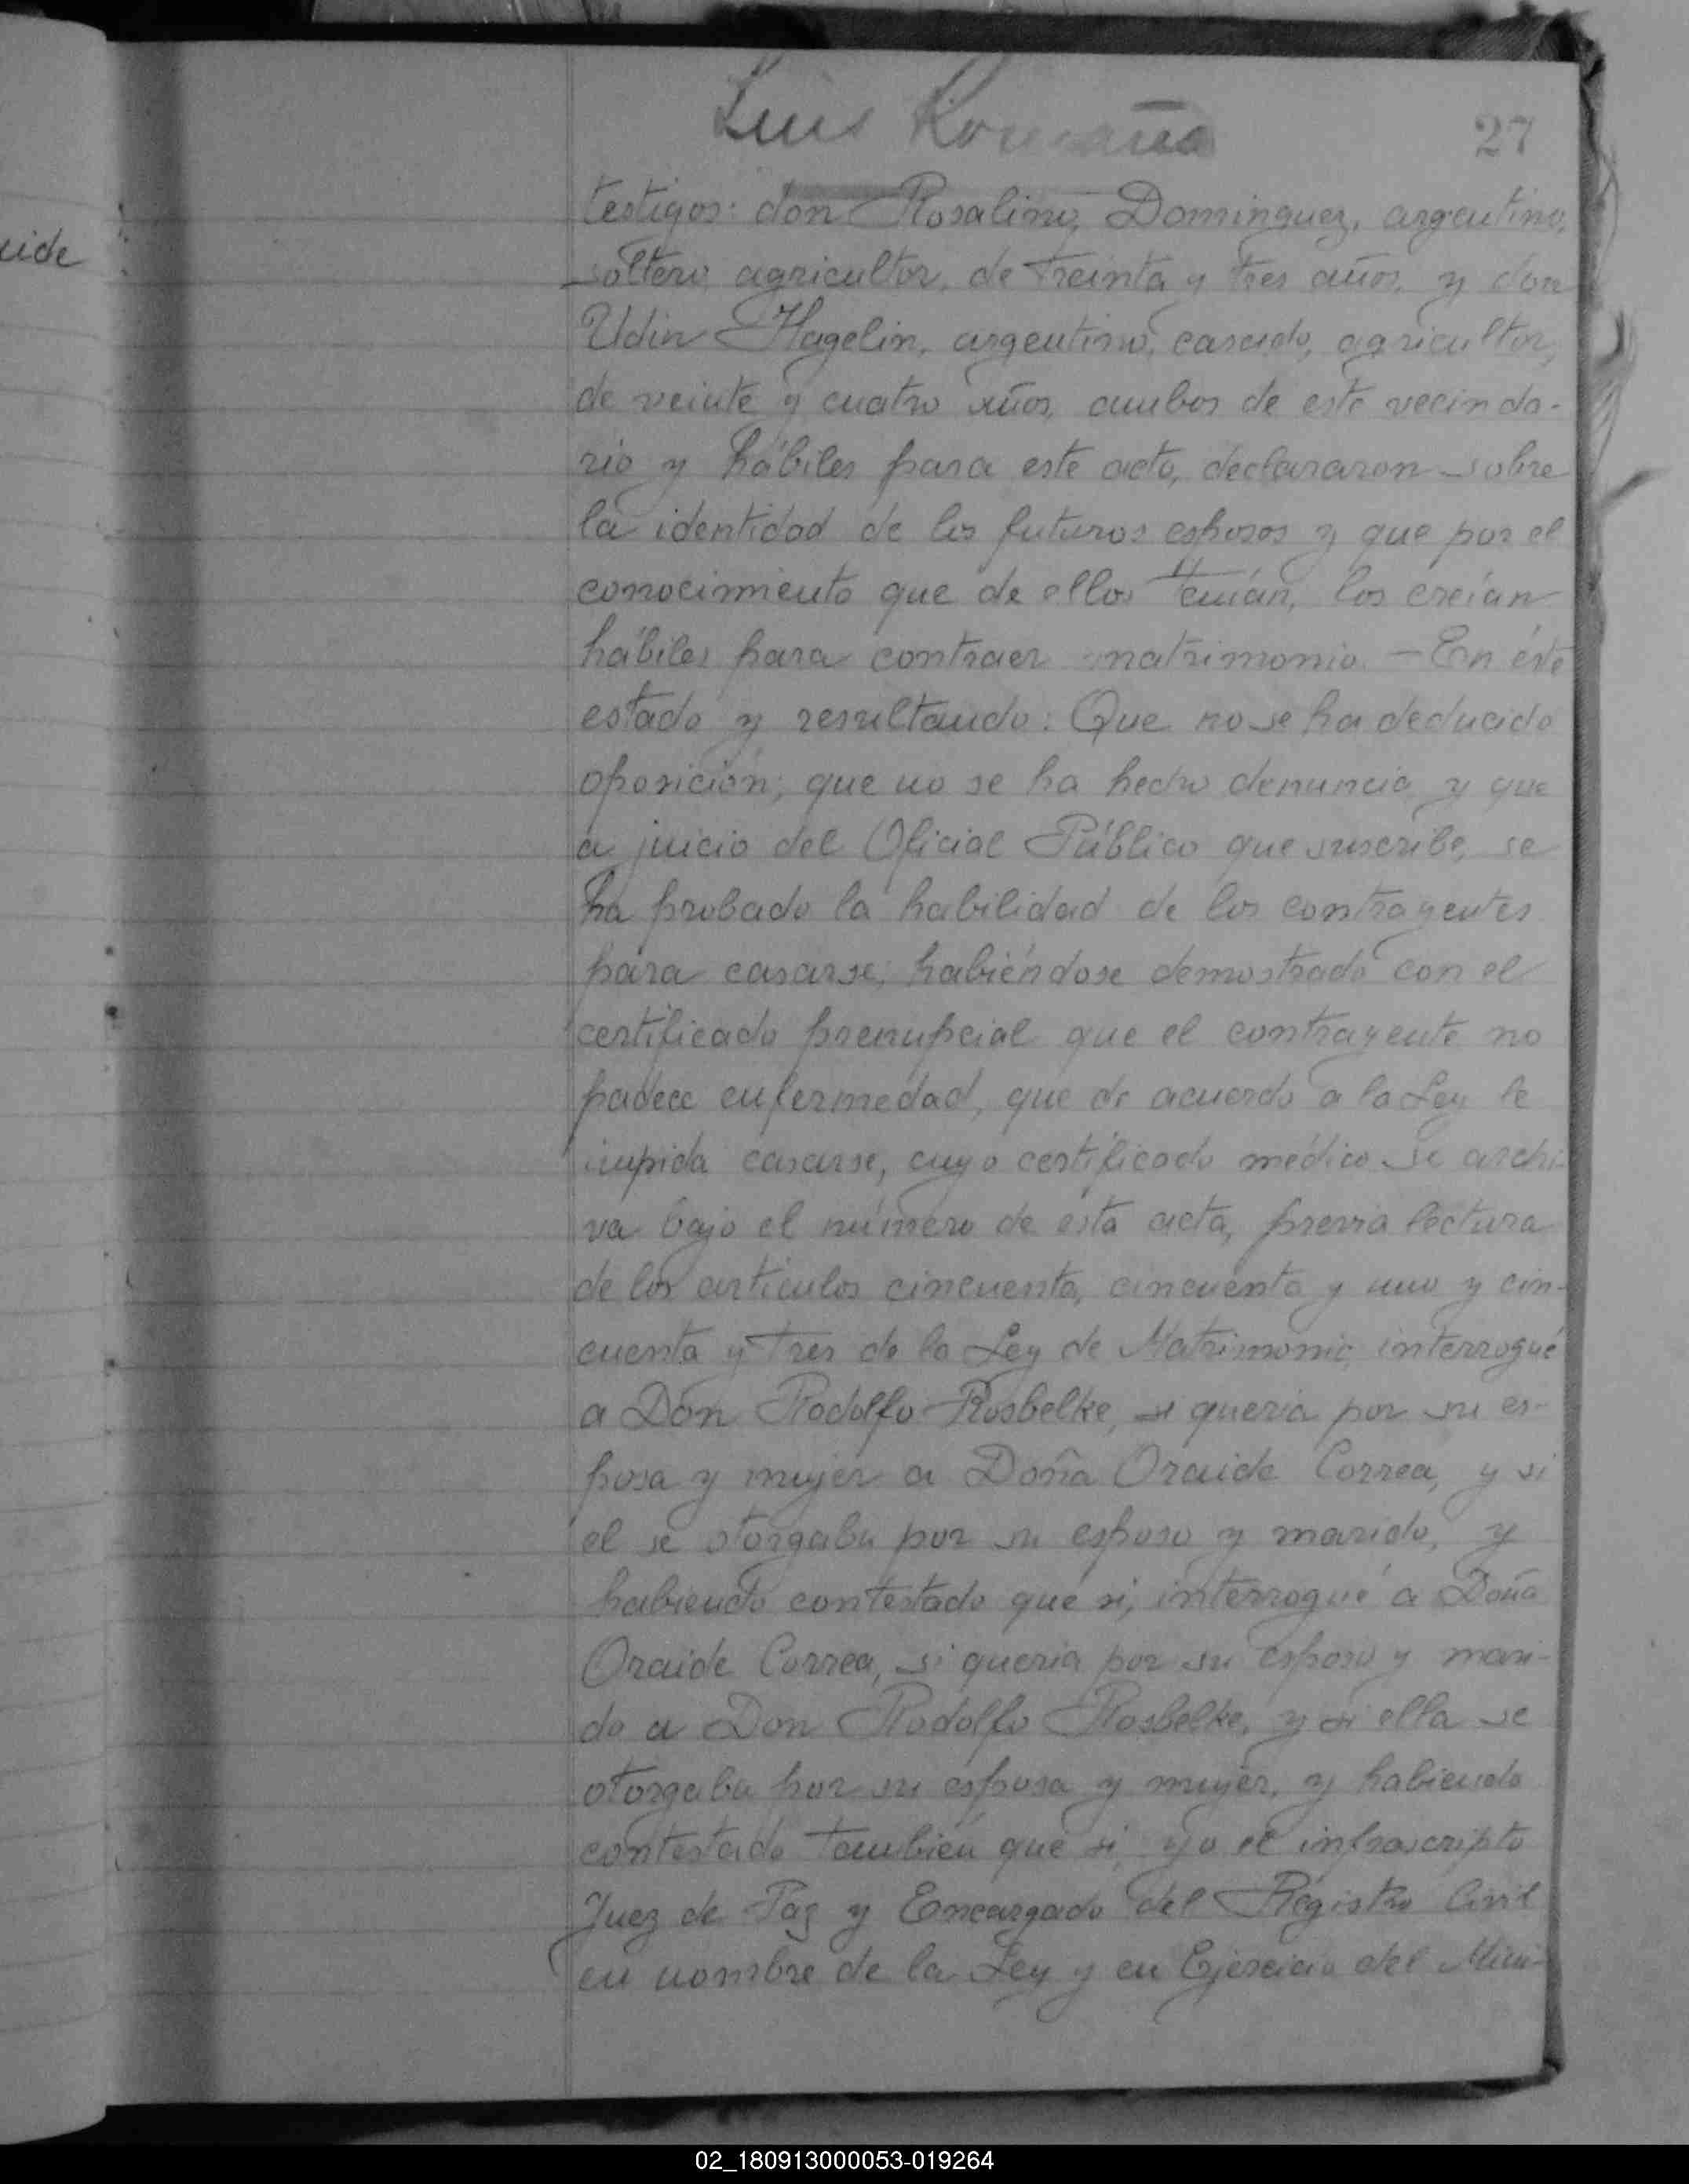 Luis Romaña
27
uide
testigos: don Rosalino Dominguez, argentino,
soltero, agricultor, de treinta y tres años, y don
Udin Hagelin, argentino, casado, agricultor,
de veinte y cuatro años, ambos de este vecinda-
rio y hábiles para este acto, declararon sobre
la identidad de los futuros esposos y que por el
conocimiento que de ellos tenían, los creían
hábiles para contraer matrimonio. - En éste
estado y resultando: Que no se ha deducido
oposición; que no se ha hecho denuncia y que
a juicio del Oficial Público que suscribe, se
ha probado la habilidad de los contrayentes
para casarse; habiéndose demostrado con el
certificado prenupcial que el contrayente no
padece enfermedad, que de acuerdo a la Ley le
impida casarse, cuyo certificado médico se archi-
va bajo el número de esta acta, previa lectura
de los artículos cincuenta, cincuenta y uno y cin-
cuenta y tres de la Ley de Matrimonio, interrogué
a Don Rodolfo Rosbelke, si queria por su es-
posa y mujer a Doña Oraide Correa, y si
el se otorgaba por su esposo y marido, y
habiendo contestado que si, interrogué a Doña
Oraide Correa, si queria por su esposo y mari-
do a Don Rodolfo Rosbelke, y si ella se
otorgaba por su esposa y mujer, y habiendo
contestado también que si, yo el infrascripto
Juez de Paz y Encargado del Registro Civil
en nombre de la Ley y en Ejercicio del Mini-
02_180913000053-019264